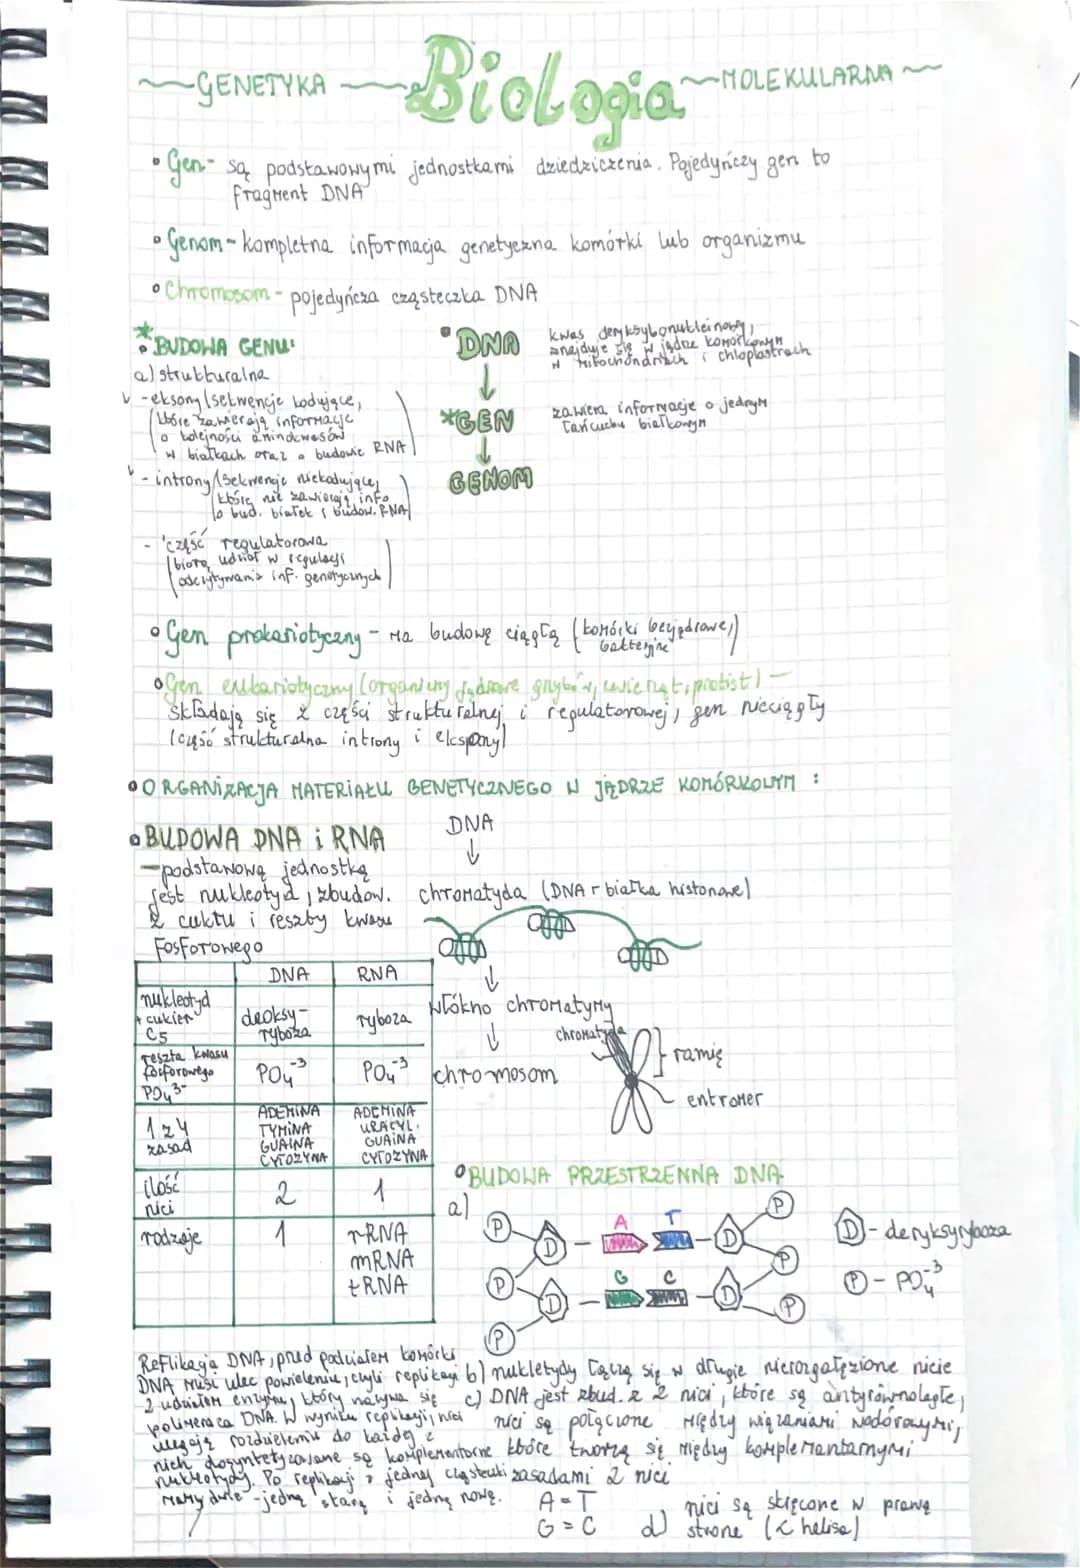 ~GENETYKA ~ Biologia ~ MOLEKULARNA ~
• Gen - są podstawowymi jednostkami dziedziczenia. Pojedyńczy gen to
fragment DNA
• Genom - kompletna informacja genetyczna komórki lub organizmu
• Chromosom - pojedyńcza cząsteczka DNA
* • BUDOWA GENU:
a) strukturalna
- eksony (sekwencje kodujące,
które zawierają informacje
o kolejności aminokwasów
w białkach oraz o budowie RNA)
- introny (sekwencje niekodujące,
które nie zawierają info
o bud. białek i budow. RNA)
- część regulatorowa
(biorą udział w regulacji
odczytywania inf. genetycznych)
• DNA
kwas deryksybonukleinowy,
znajduje się w jądrze komórkowym
w mitochondriach i chloplastrach
↓
*GEN
zawiera informacje o jednym
łańcuchu białkowym
↓
GENOM
• Gen prokariotyczny - ma budowę ciągłą (komórki bezjądrowe,
bakteryjne)
• Gen eukariotyczny (organizmy jądrowe grzybów, zwierząt, protist) -
składają się z części strukturalnej i regulatorowej, gen nieciągły
(część strukturalna introny i ekspony)
• ORGANIZACJA MATERIAŁU GENETYCZNEGO W JĄDRZE KOMÓRKOWYM :
• BUDOWA DNA i RNA
- podstawową jednostką
jest nukleotyd, zbudow.
z cukru i reszty kwasu
fosforowego
DNA
↓
chromatyda (DNA + białka histonowe)
↓
włókno chromatyny
↓
chromosom
chromatyda
ramię
entromer
DNA RNA
nukleotyd
+ cukier
C5
deoksy-
ryboza
ryboza
reszta kwasu
fosforowego
PO₄³⁻
PO₄⁻³
PO₄⁻³
1 z 4
zasad
ADEMINA
TYMINA
GUAINA
CYTOZYNA
ADEMINA
URACYL.
GUAINA
CYTOZYNA
ilość
nici
2 1
rodzaje 1
rRNA
mRNA
tRNA
• BUDOWA PRZESTRZENNA DNA
a)
P D A T D P
P D G C D P
P P
D - deryksyryboza
P - PO₄⁻³
b) nukletydy łączą się w drugie nierozgałęzione nicie
c) DNA jest zbud. z 2 nici, które są antyrównoległe,
nici są połączone między wiązaniami wodorowymi,
które tworzą się między komplemantarnymi
zasadami 2 nici
A = T
G = C
d) nici są skręcone w prawą
stronę (α helisa)
Reflikacja DNA, przed podziałem komórki
DNA musi ulec powieleniu, czyli replikacji
z udziałem enzymu, który nazywa się
polimeraza DNA. W wyniku replikacji, nici
ulegają rozdzieleniu do każdej z
nich dosyntetyzowane są komplementarne
nukleotydy. Po replikacji z jednej cząsteczki
mamy dwie - jedną starą i jedną nową.